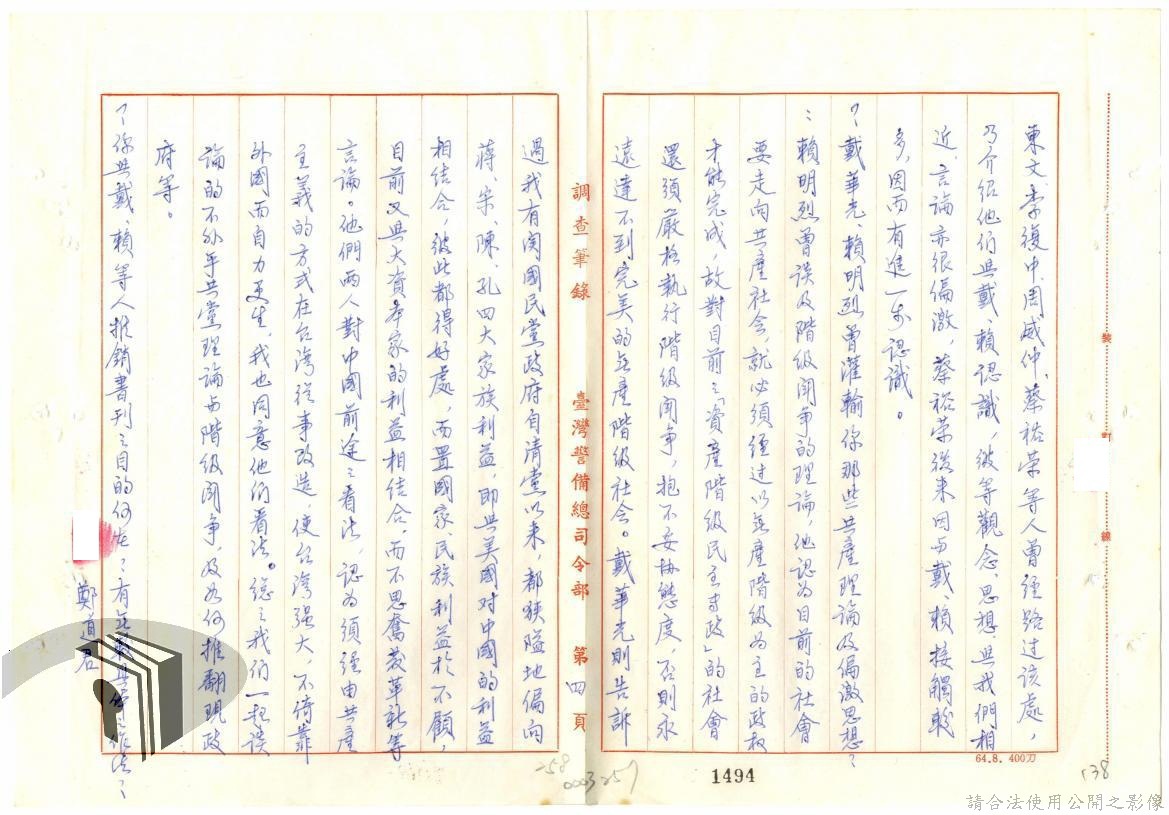 東文、李復中、周威仲、蔡裕荣等人曾经路过该處，
乃介绍他们與戴、賴認識，彼等觀念、思想與我們相
近，言論亦很偏激，蔡裕荣後来因与戴、賴接觸較
多，因而有進一步認識。
？戴華光、賴明烈曾灌輸你那些共產理論及偏激思想？
：賴明烈曾谈及階級鬪争的理論，他認為目前的社會
要走向共產社会，就必須經过以无產階級为主的政权
才能完成，故對目前之「資產階級民主专政」的社會
還須嚴格執行階級鬪争，抱不妥協態度，否則永
遠達不到完美的无產階級社会。戴華光則告訴
調查筆錄　臺灣警備總司令部　第四頁
過我有関國民黨政府自清黨以来，都狹隘地偏向
蔣、宋、陳、孔四大家族利益，即與美國对中國的利益
相结合，彼此都得好處，而置國家、民族利益於不顧，
目前又與大資本家的利益相结合而不思奮發革新等
言論。他們两人對中國前途之看法，認为須經由共產
主義的方式在台湾從事改造，使台湾强大，不倚靠
外國而自力更生，我也同意他们看法。總之我们一起谈
論的不外乎共黨理論与階級鬪争，及如何推翻現政
府等。
？你與戴、賴等人推銷書刊之目的何在？有无
鄭道君
裝
訂
線
64.8. 400刀
1494
258
0003
257
138
請合法使用公開之影像